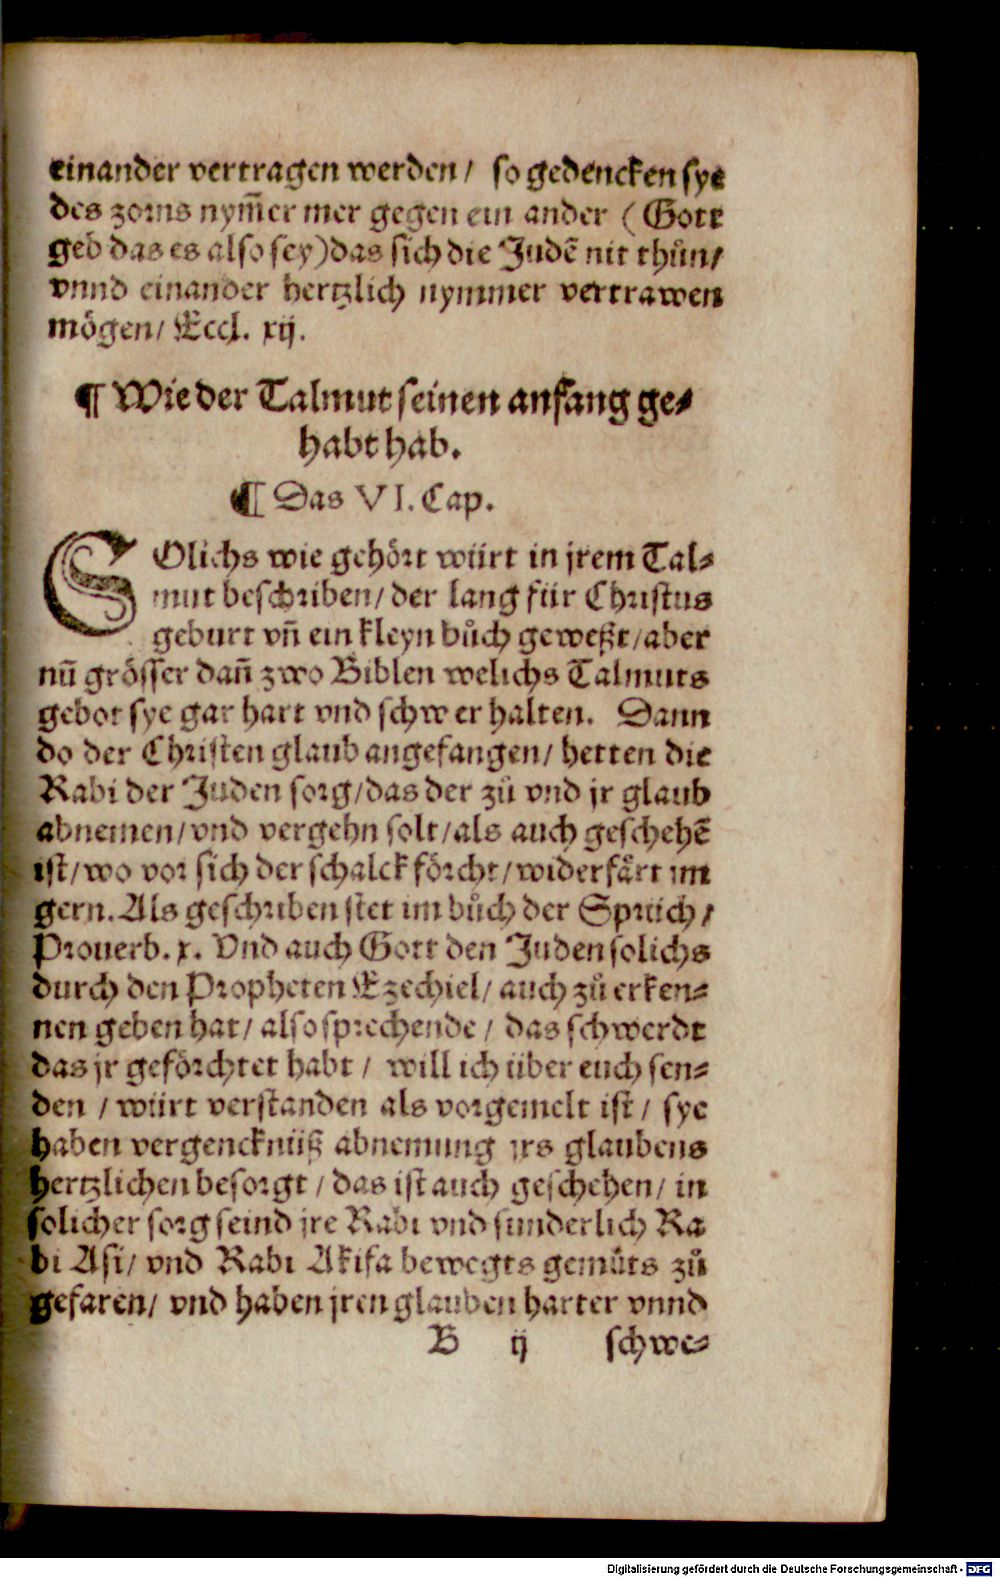 einander vertragen werden/ so gedencken sye
des zorns nym̃er mer gegen ein ander (Gott
geb das es also sey) das sich die Judẽ nit thůn/
vnnd einander hertzlich nymmer vertrawen
mögen/ Eccl. xij.
¶ Wie der Talmut seinen anfang ge-
habt hab.
¶ Das VI. Cap.
SOlichs wie gehört würt in jrem Tal-
mut beschriben/ der lang für Christus
geburt vñ ein kleyn bůch geweßt/ aber
nũ grösser dañ zwo Biblen welichs Talmuts
gebot sye gar hart vnd schwer halten. Dann
do der Christen glaub angefangen/ hetten die
Rabi der Juden sorg/ das der zů vnd jr glaub
abnemen/ vnd vergehn solt/ als auch geschehẽ
ist/ wo vor sich der schalck förcht/ widerfärt im
gern. Als geschriben stet im bůch der Sprüch/
Prouerb. x. Vnd auch Gott den Juden solichs
durch den Propheten Ezechiel/ auch zů erken-
nen geben hat/ also sprechende/ das schwerdt
das jr geförchtet habt/ will ich über euch sen-
den / würt verstanden als vorgemelt ist/ sye
haben vergencknüß abnemung jrs glaubens
hertzlichen besorgt / das ist auch geschehen/ in
solicher sorg seind jre Rabi vnd sunderlich Ra
bi Asi/ vnd Rabi Akifa bewegts gemůts zů
gefaren/ vnd haben jren glauben harter vnnd
B ij schwe-
Digitalisierung gefördert durch die Deutsche Forschungsgemeinschaft - DFG